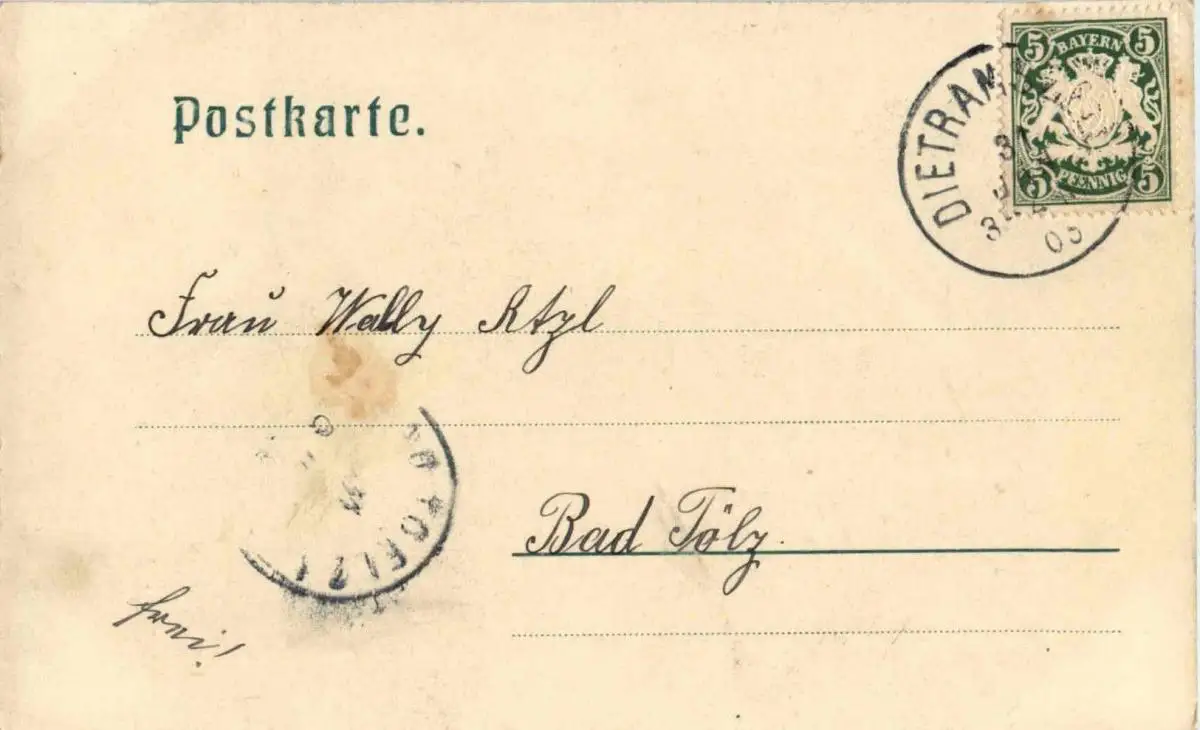 Postkarte.
5 BAYERN 5
5 PFENNIG 5
DIETRAM
3
05
Frau Wally
Bad Tölz.
frei!